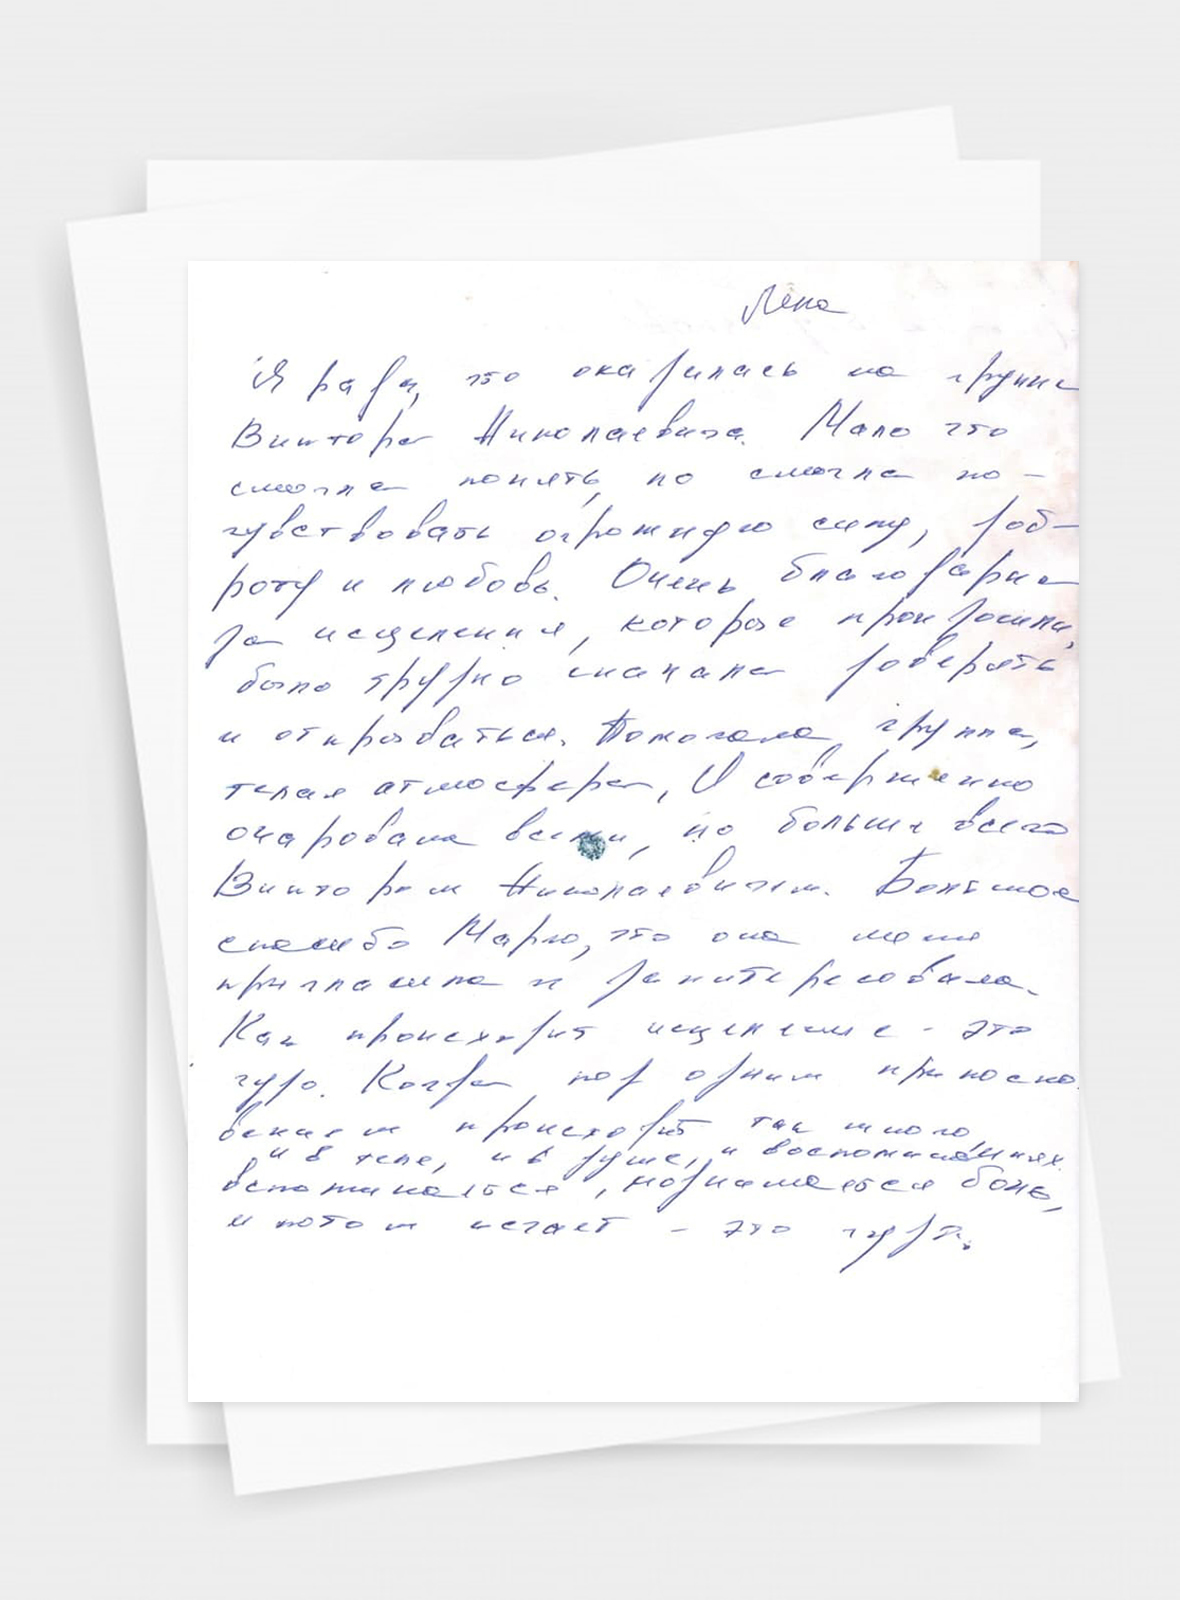 Лена
Я рада, что оказалась на группе
Виктора Николаевича. Мало что
смогла понять, но смогла по-
чувствовать огромную силу, доб-
роту и любовь. Очень благодарна
за исцеления, которые произошли,
было трудно сначала доверять
и открываться. Помогала группа,
теплая атмосфера, Я совершенно
очарована всеми, но больше всего
Виктором Николаевичем. Большое
спасибо Марго, что она меня
пригласила и заинтересовала.
Как происходит исцеление - это
чудо. Когда под одним прикосно
вением происходит так много
и в теле, и в душе, и воспоминаниях
вспоминается, поднимается боль,
и потом исчает - это чудо.